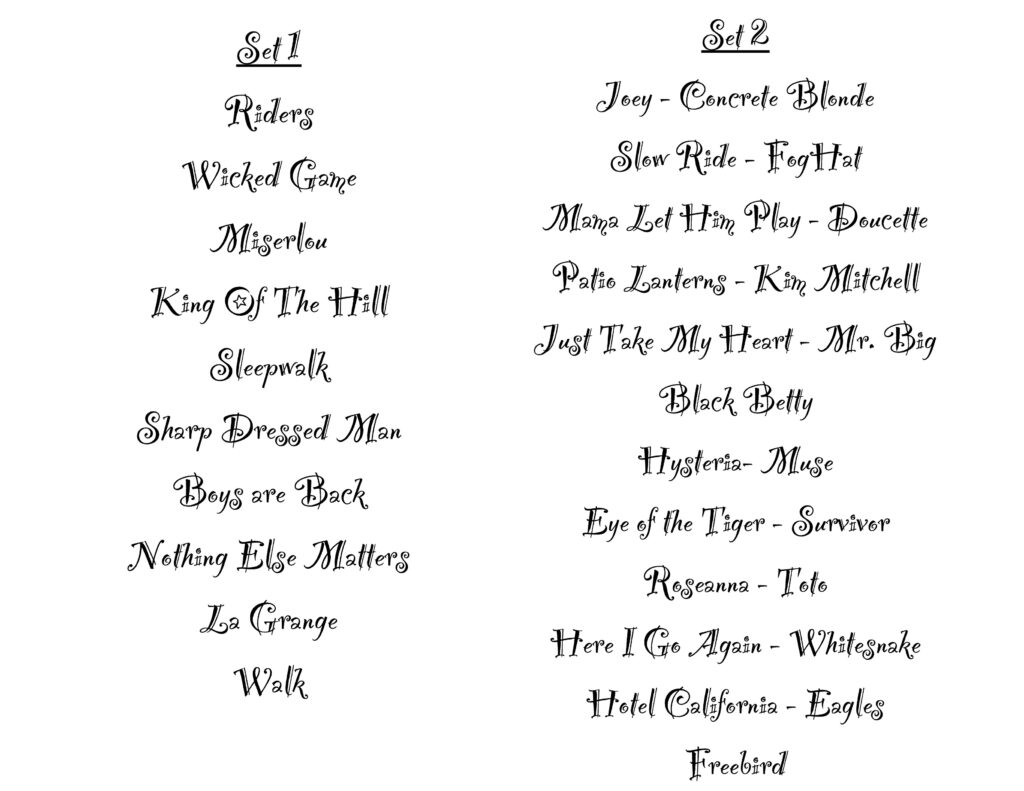 Set 1
Riders
Wicked Game
Miserlou
King Of The Hill
Sleepwalk
Sharp Dressed Man
Boys are Back
Nothing Else Matters
La Grange
Walk
Set 2
Joey - Concrete Blonde
Slow Ride - FogHat
Mama Let Him Play - Doucette
Patio Lanterns - Kim Mitchell
Just Take My Heart - Mr. Big
Black Betty
Hysteria- Muse
Eye of the Tiger - Survivor
Roseanna - Toto
Here I Go Again - Whitesnake
Hotel California - Eagles
Freebird